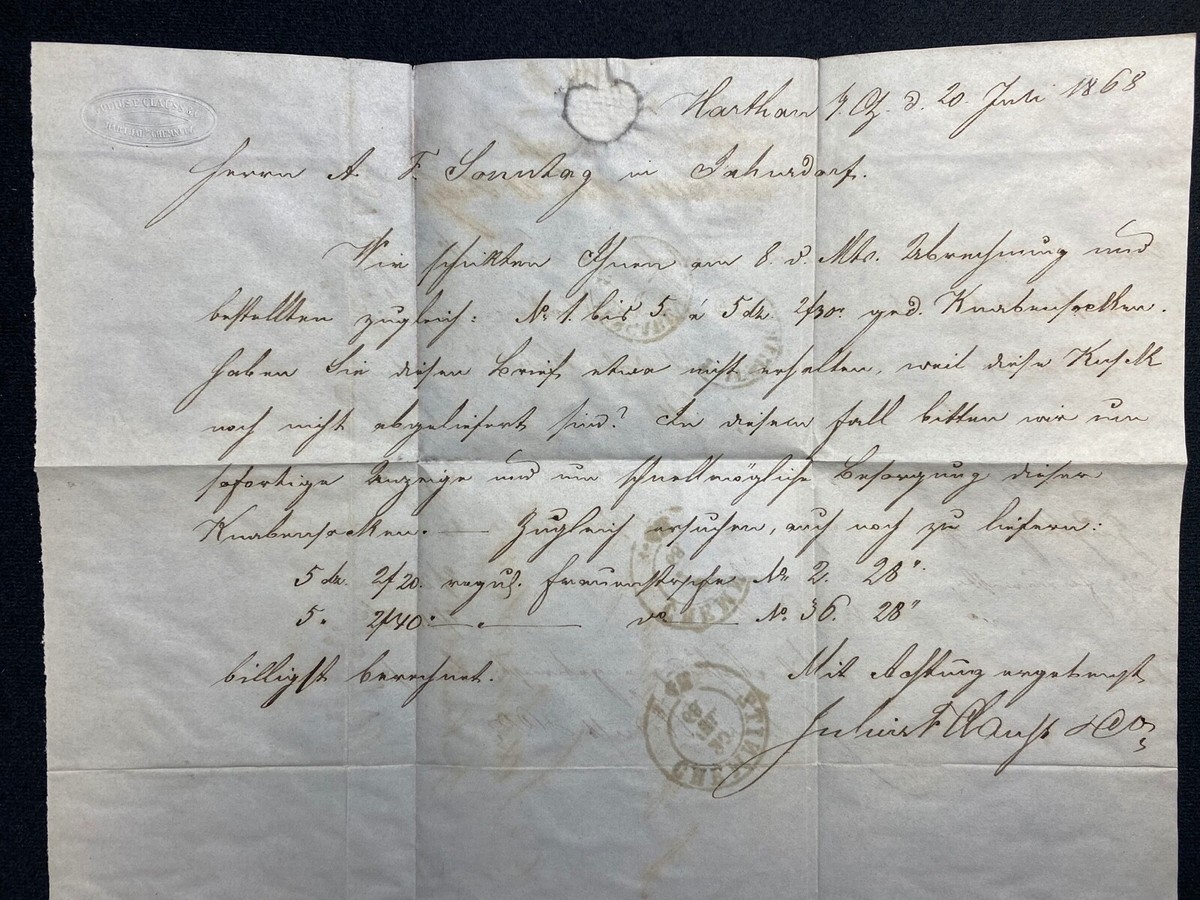 Harthau b. Ch. d. 20. Juli 1868
Herrn A. F. Sonntag in Jahnsdorf.
Wir schickten Ihnen am 8. d. Mts. Abrechnung und
bestellten zugleich: No 1. bis 5. á 5 dz. ged. Knabensocken.
Haben Sie diesen Brief etwa nicht erhalten, weil diese
noch nicht abgeliefert sind? In diesem Fall bitten wir um
sofortige Anzeige und um schnellmögliche Besorgung dieser
Knabensocken. — Zugleich ersuchen, auch noch zu liefern:
5 dz. 2/20. regul. Frauenstrümpfe No 2. 28"
5 " 2/40. — " — do — No 36. 28"
billigst berechnet. Mit Achtung ergebenst
Julius F Clauss & Co
CHEMNITZ